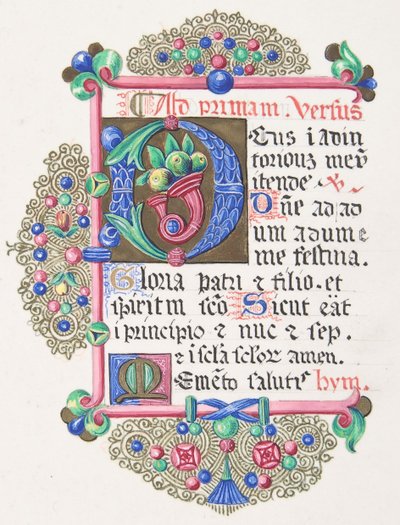 Ad primam. Versus
Deus i adiu
toriouz meū
itende
Dn̄e ad ad
um adume
me festina.
Gloria patri ⁊ filio. et
spiritm sc̄o Sicut eāt
i principio ⁊ nuc ⁊ sep.
⁊ i scl̄a scl̄or amen.
Memēto salutis hym.